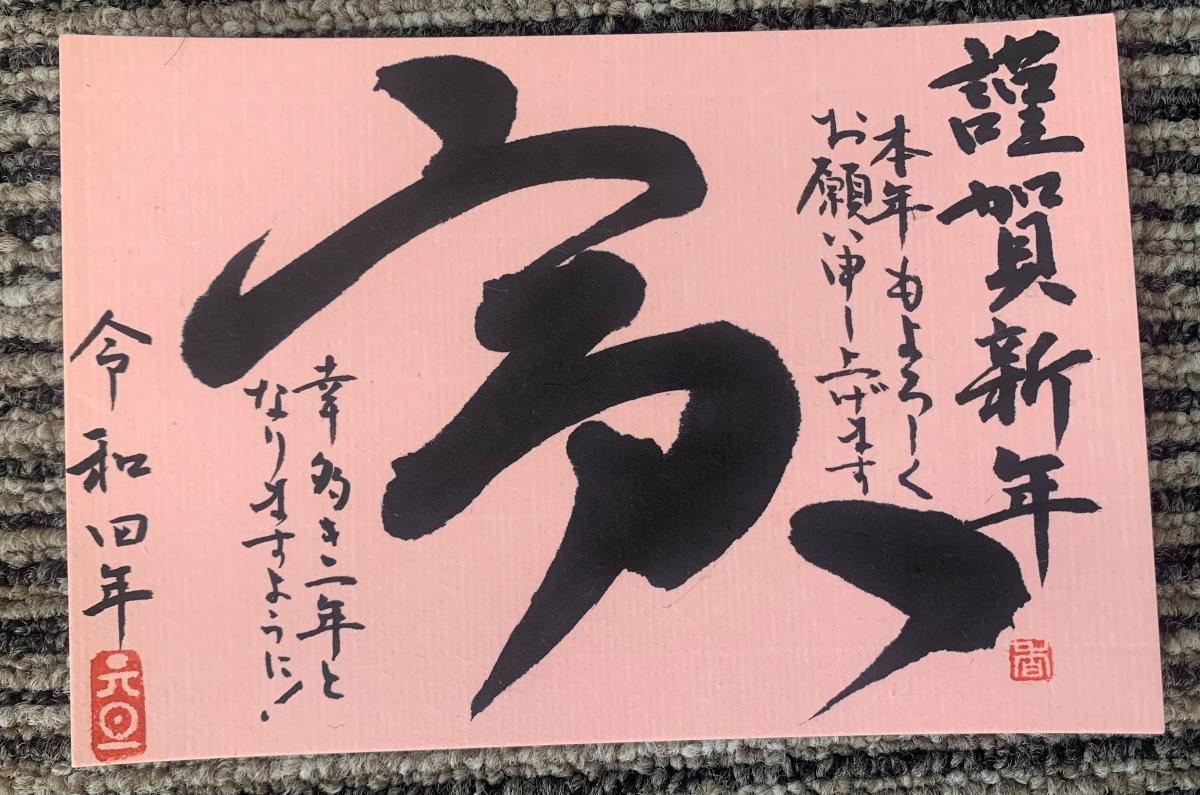 謹賀新年
本年もよろしく
お願い申し上げます
寅
幸多き一年と
なりますように！
令和四年
元旦
香